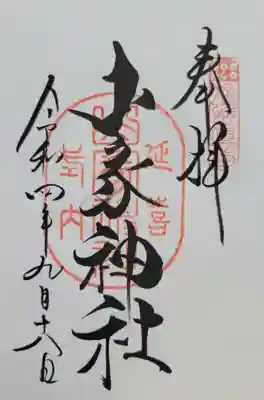 奉拝
延喜
山家神社
式内
令和四年九月十八日